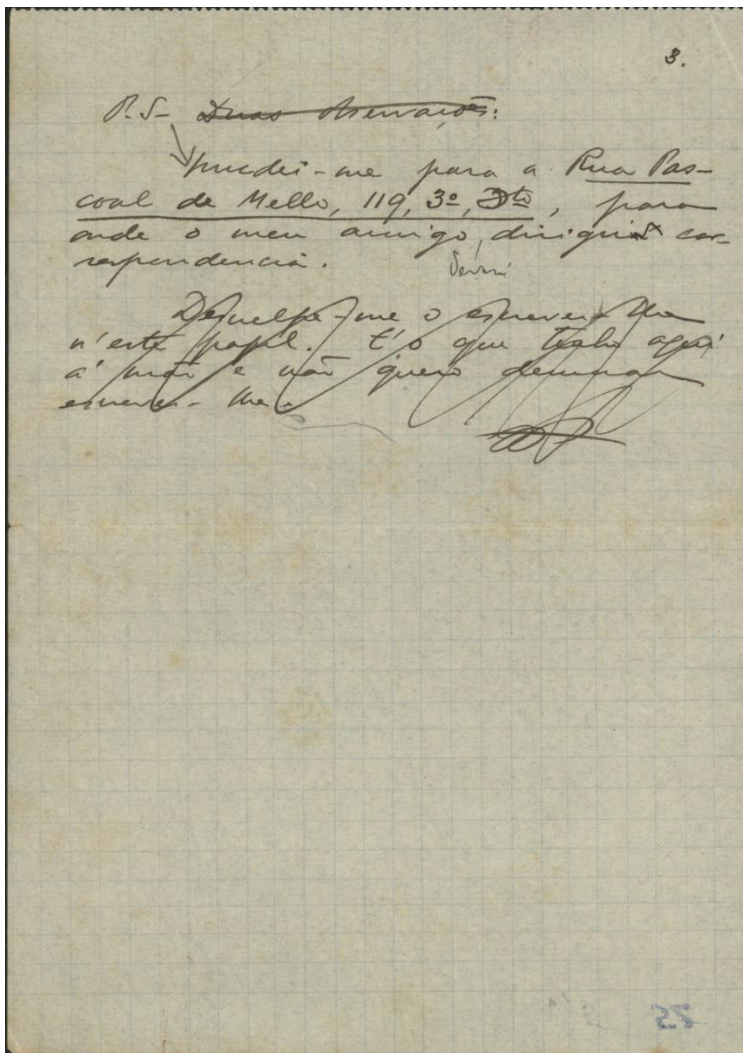 3.
P.S- Duas observações:
Mudei-me para a Rua Pas-
coal de Mello, 119, 3º, Dto, para
onde o meu amigo, dirigirá cor-
deverá
respondencia.
Desculpe-me o escrever-lhe
n'este papel. É o que tenho aqui
á mão e não quero demorar
escrever-lhe.
25